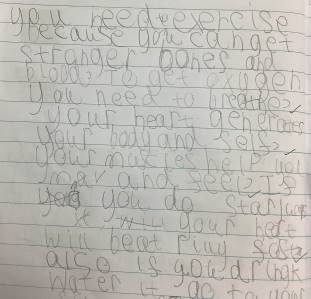 you need exercise
because you can get
stranger bones and
blood to get oxygen
you need to breathe
your heart generates
your body and sels
your musles help you
muv and
you do star jump
your heat
will beat riliy fast
also is you drink
water it go to your